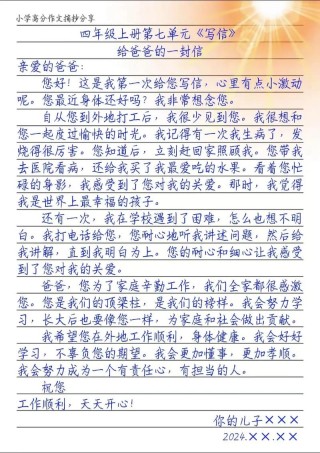 小学高分作文摘抄分享
四年级上册第七单元《写信》
给爸爸的一封信
亲爱的爸爸：
您好！这是我第一次给您写信，心里有点小激动
呢。您最近身体还好吗？我非常想念您。
自从您到外地打工后，我很少见到您。我很想和
您一起度过愉快的时光。我记得有一次我生病了，发
烧得很厉害。您知道后，立刻赶回家照顾我。您带我
去医院看病，还给我买了我最爱吃的水果。看着您忙
碌的身影，我感受到了您对我的关爱。那时，我觉得
我是世界上最幸福的孩子。
还有一次，我在学校遇到了困难，怎么也想不明
白。我打电话给您，您耐心地听我讲述问题，然后给
我讲解，直到我明白为上。您的耐心和细心让我感受
到了您对我的关爱。
爸爸，您为了家庭辛勤工作，我们全家都很感激
您。您是我们的顶梁柱，是我们的榜样。我会努力学
习，长大后也要像您一样，为家庭和社会做出贡献。
我希望您在外地工作顺利，身体健康。我会好好
学习，不辜负您的期望。我会更加懂事，更加孝顺。
我会努力成为一个有责任心，有担当的人。
祝您
工作顺利，天天开心！
你的儿子×××
2024.××.××